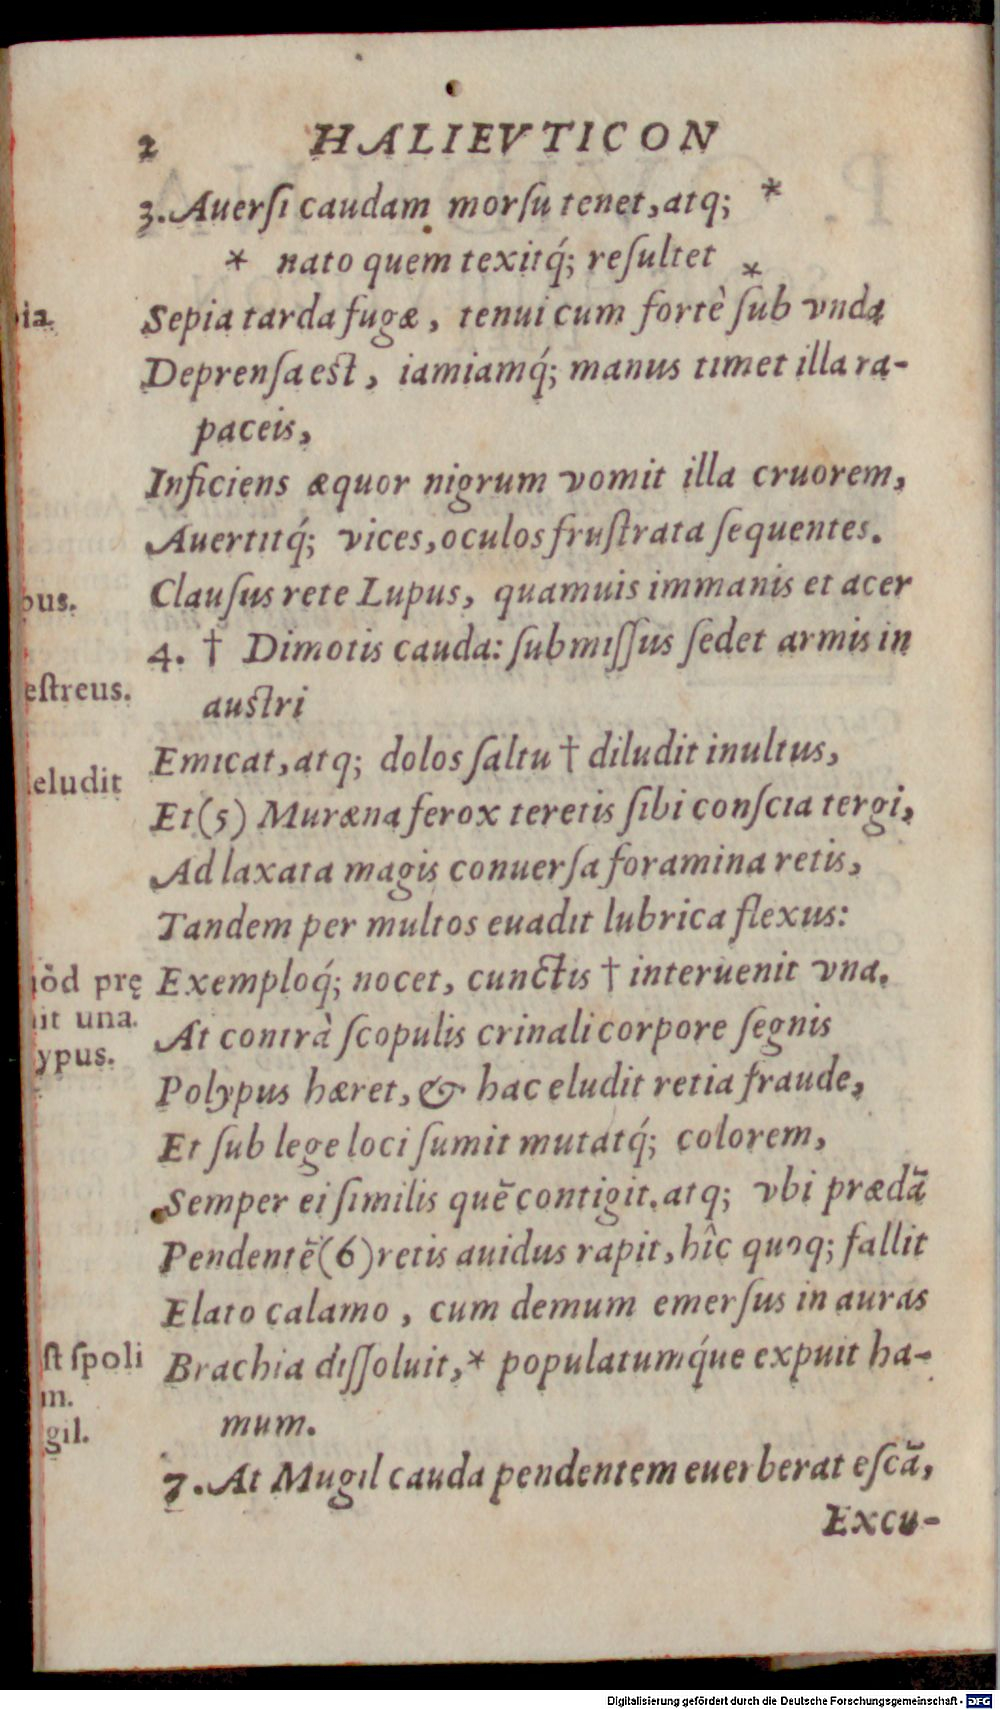 2 HALIEVTICON
3. Auersi caudam morsu tenet, atq; *
* nato quem texitq́; resultet *
ia. Sepia tarda fugæ, tenui cum fortè sub vnda
Deprensa est, iamiamq́; manus timet illa ra-
paceis,
Inficiens æquor nigrum vomit illa cruorem,
Auertitq́; vices, oculos frustrata sequentes.
pus. Clausus rete Lupus, quamuis immanis et acer
4. † Dimotis cauda: submissus sedet armis in
estreus. austri
eludit Emicat, atq; dolos saltu † diludit inultus,
Et (5) Muræna ferox teretis sibi conscia tergi,
Ad laxata magis conuersa foramina retis,
Tandem per multos euadit lubrica flexus:
òd prę Exemploq́; nocet, cunctis † interuenit vna.
it una. At contrà scopulis crinali corpore segnis
ypus. Polypus hæret, & hac eludit retia fraude,
Et sub lege loci sumit mutatq́; colorem,
Semper ei similis quē contigit. atq; vbi prædā
Pendentē (6) retis auidus rapit, hîc quoq; fallit
Elato calamo, cum demum emersus in auras
st spoli Brachia dissoluit, * populatumq́ue expuit ha-
m.
gil. mum.
7. At Mugil cauda pendentem euerberat escā,
Excu-
Digitalisierung gefördert durch die Deutsche Forschungsgemeinschaft - DFG